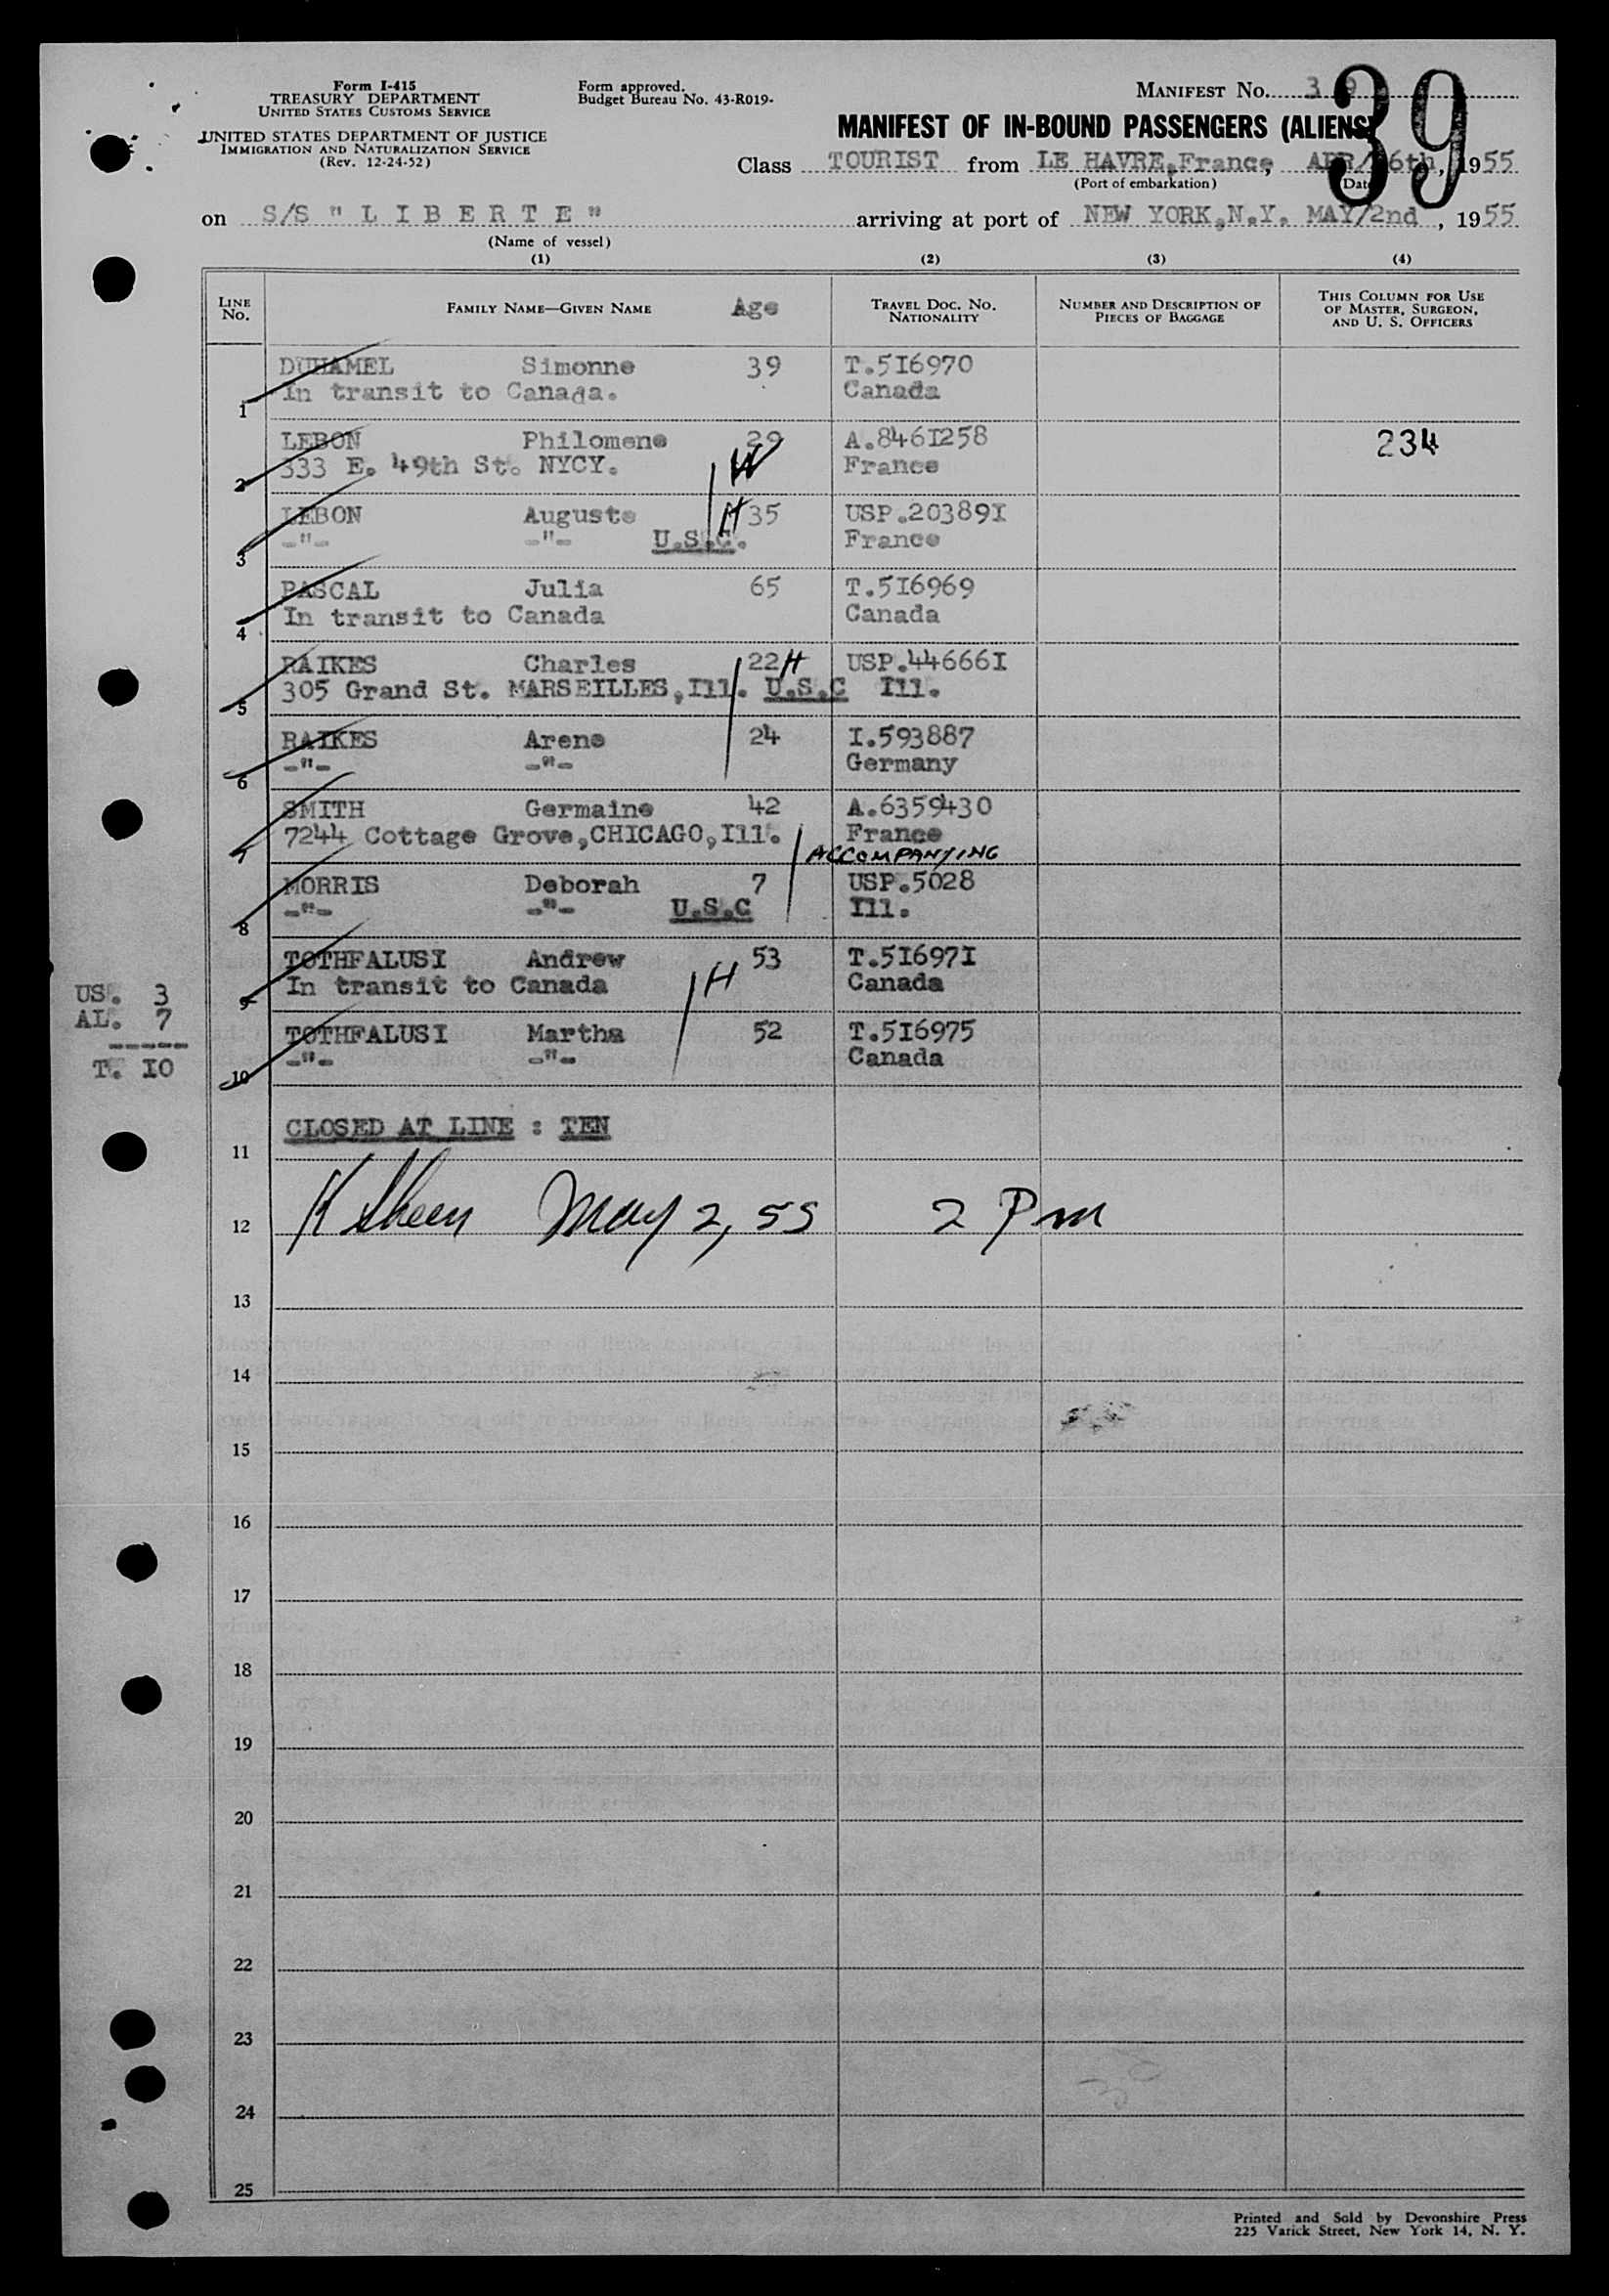 Form I-415
TREASURY DEPARTMENT
UNITED STATES CUSTOMS SERVICE
UNITED STATES DEPARTMENT OF JUSTICE
IMMIGRATION AND NATURALIZATION SERVICE
(Rev. 12-24-52)
Form approved.
Budget Bureau No. 43-R019-
MANIFEST No. 39
39
MANIFEST OF IN-BOUND PASSENGERS (ALIENS)
Class TOURIST from LE HAVRE,France, APR/ 6th, 1955
(Port of embarkation) (Date
on S/S " L I B E R T E " arriving at port of NEW YORK,N.Y. MAY/2nd , 1955
(Name of vessel)
(1) (2) (3) (4)
LINE No. FAMILY NAME—GIVEN NAME Age TRAVEL DOC. No. NATIONALITY NUMBER AND DESCRIPTION OF PIECES OF BAGGAGE THIS COLUMN FOR USE OF MASTER, SURGEON, AND U. S. OFFICERS
DUHAMEL Simonne 39 T.5I6970
1 In transit to Canada. Canada
LEBON Philomene 29 A.846I258 234
2 333 E. 49th St. NYCY. W France
LEBON Auguste H 35 USP.20389I
3 -"- -"- U.S.C. France
PASCAL Julia 65 T.5I6969
4 In transit to Canada Canada
RAIKES Charles 22 H USP.44666I
5 305 Grand St. MARSEILLES,Ill. U.S.C Ill.
RAIKES Arene 24 I.593887
6 -"- -"- Germany
SMITH Germaine 42 A.6359430
7 7244 Cottage Grove,CHICAGO,Ill. France
ACCOMPANYING
MORRIS Deborah 7 USP.5028
8 -"- -"- U.S.C Ill.
TOTHFALUSI Andrew 53 T.5I697I
9 In transit to Canada H Canada
TOTHFALUSI Martha 52 T.5I6975
10 -"- -"- Canada
US. 3
AL. 7
-----
T. IO
CLOSED AT LINE : TEN
11
12 May 2, 55 2 Pm
13
14
15
16
17
18
19
20
21
22
23
24
25
Printed and Sold by Devonshire Press
225 Varick Street, New York 14, N. Y.